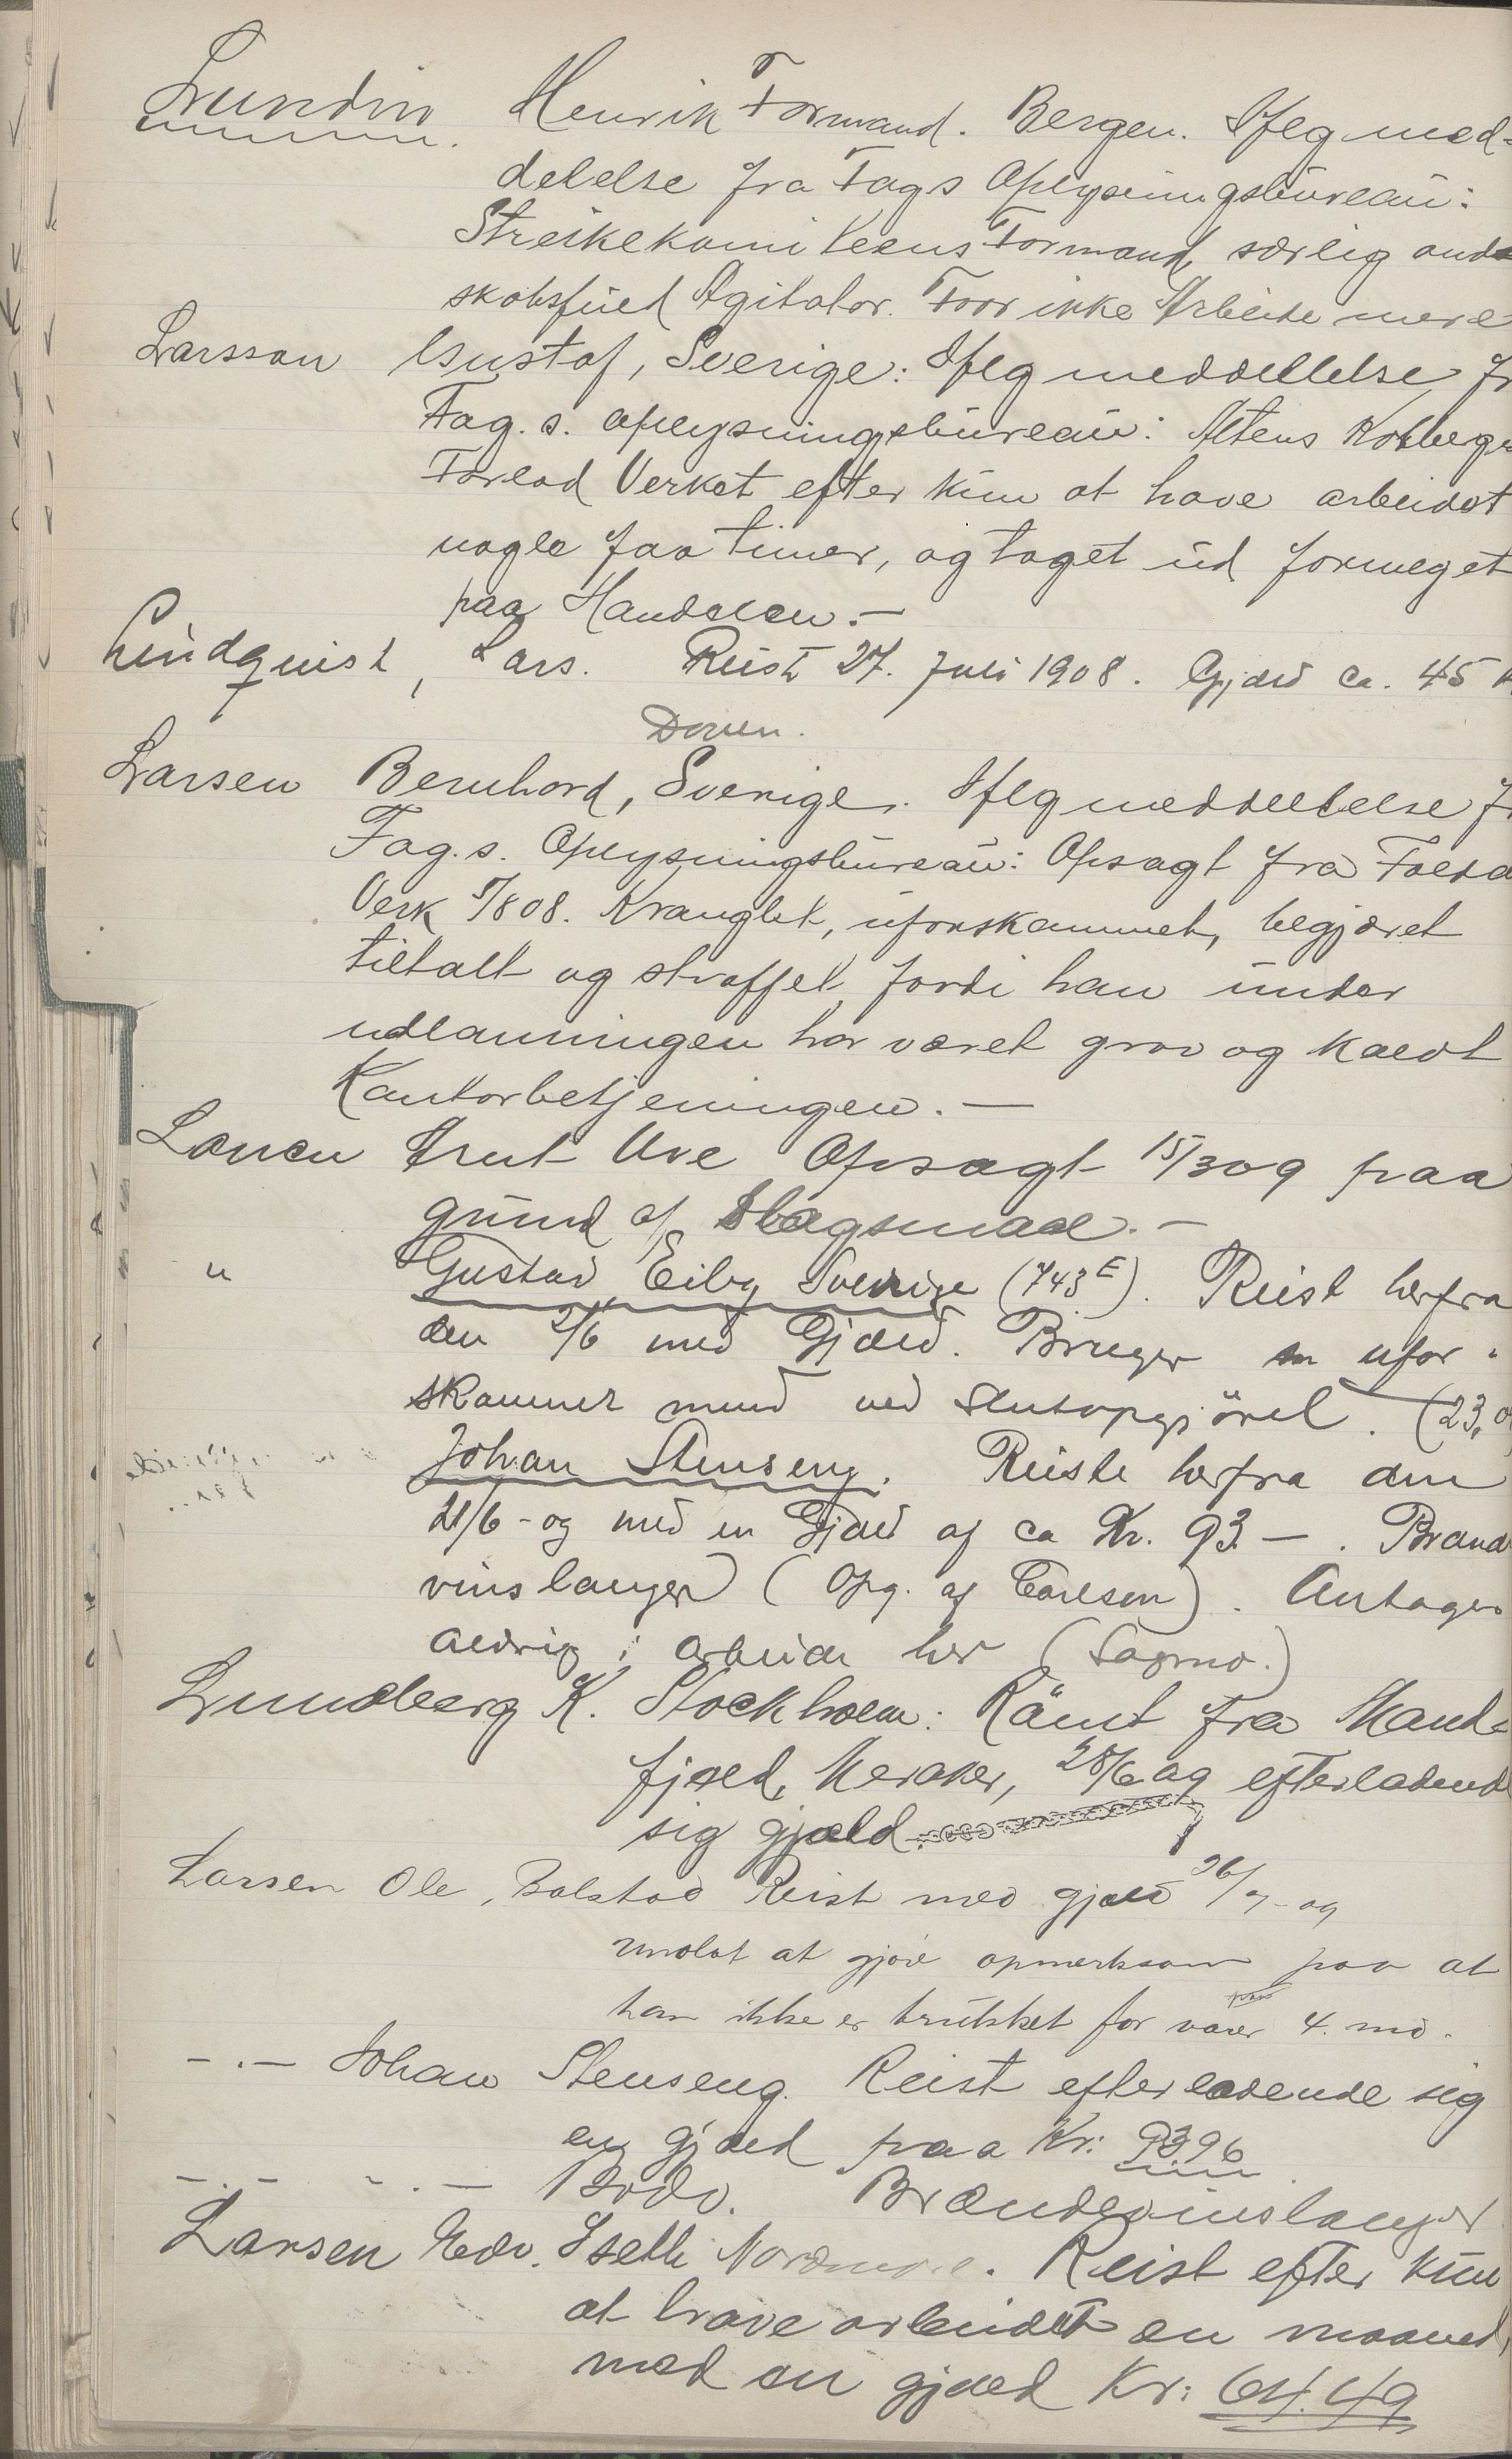 Lundin Henrik Formand. Bergen. Iflg med-
delelse fra Fags Oplysningsbureau:
Streikekomiteens Formand, særlig ond-
skabsfuld Agitator. Faar ikke Arbeide mere
Larsson Gustaf, Sverige: Iflg meddellelse fr
Fag. s. oplysningsbureau: Altens Kobberg
Forlod Verket efter kun at have arbeidet
nogle faa timer, og taget ud formeget
paa Handelen. —
Lindquist, Lars. Reist 27. Juli 1908. Gjæld ca. 45 k
Doven.
Larsen Bernhard, Sverige. Iflg meddelelse fr
Fag. s. Oplysningsbureau: Opsagt fra Foldal
Verk 5/8 08. Kranglet, uforskammet, begjæret
tiltalt og straffet, fordi han under
udlønningen har været grov og kaldt
Kontorbetjeningen. —
Larsen Arnt Uve Opsagt 15/3 09 paa
grund af Slagsmaal. —
" Gustav Eiby Sverige (743 E). Reist herfra
den 2/6 med Gjæld. Bruger en ufor-
skammet mund ved Slutopgjörel. (23,0
Johan Stenseng. Reiste herfra den
21/6-09 med en Gjæld af ca Kr. 93 — . Brænde
vinslanger (Opg. af Carlsen). Antages
aldrig i arbeide her (Sagmo.)
Lundberg K. Stockholm: Rømt fra Mand-
fjeld, Meraker, 28/6 09 efterladend
sig gjæld
Larsen Ole, Bolstad Reist med gjæld 26/7-09
undlot at gjøre opmerksom paa at
han ikke er trukket for varer 4. md.
- . — Johan Stenseng. Reist efterladende sig
en gjæld paa Kr: 93 96
- . - - . — Bodø. Brændevinslanger
Larsen Edv. Iselle Nordmøre. Reist efter kun
at have arbeidet en maaned,
med en gjæld Kr: 64.49